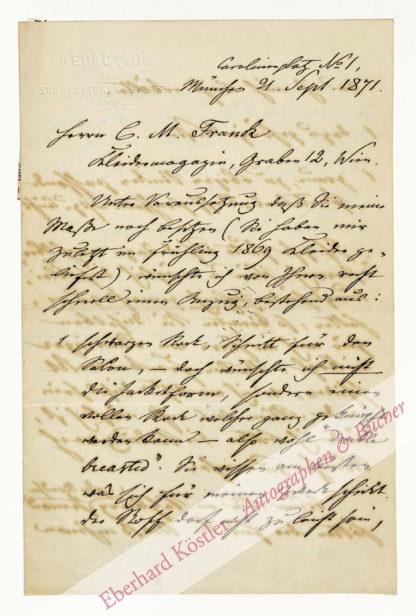 REDACTION
DER
SÜDDEUTSCHEN PRESSE
Carolinenplatz No 1,
München 21. Sept. 1871.
Herrn C. M. Frank
Kleidermagazin, Graben 12, Wien.
Unter Voraussetzung daß Sie meine
Maße noch besitzen (Sie haben mir
zuletzt im Frühling 1869 Kleider ge-
liefert), wünschte ich von Ihnen recht
schnell einen Anzug, bestehend aus:
1 schwarzen Rock, Schnitt für den
Salon, – doch wünschte ich nicht
die Jacketform, sondern einen
vollen Rock welcher ganz geknöpft
werden kann – also wohl "double
breasted". Sie wissen am besten
was ich für meinen Zweck schickt.
der Stoff darf nicht zu leicht sein,
Eberhard Köstler - Autographen & Bücher